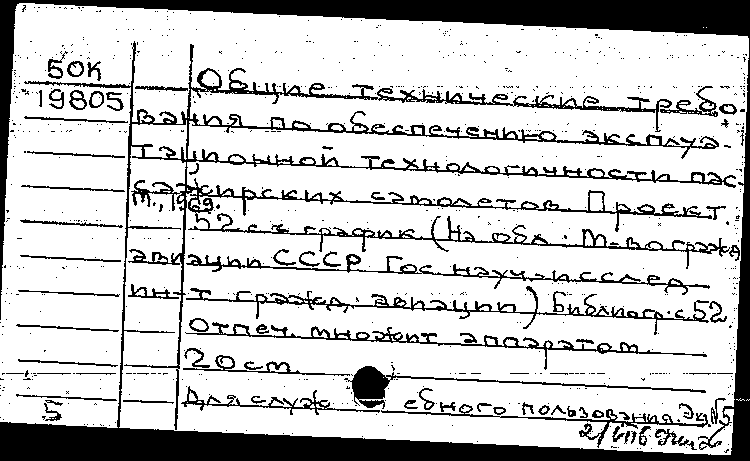 50К
19805
Общие технические требо-
вания по обеспечению эксплуа-
тационной технологичности пас-
сажирских самолетов. Проект.
М., 1969.
52 с. с график (На обл.: М-во гражд.
авиации СССР Гос науч-исслед
ин-т гражд. авиации) Библиогр. с. 52
Отпеч. множит аппаратом
20 см.
Для служебного пользования. Экз №5
5